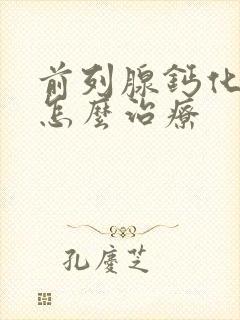 前列腺鈣化
怎麼治療
孔慶芝